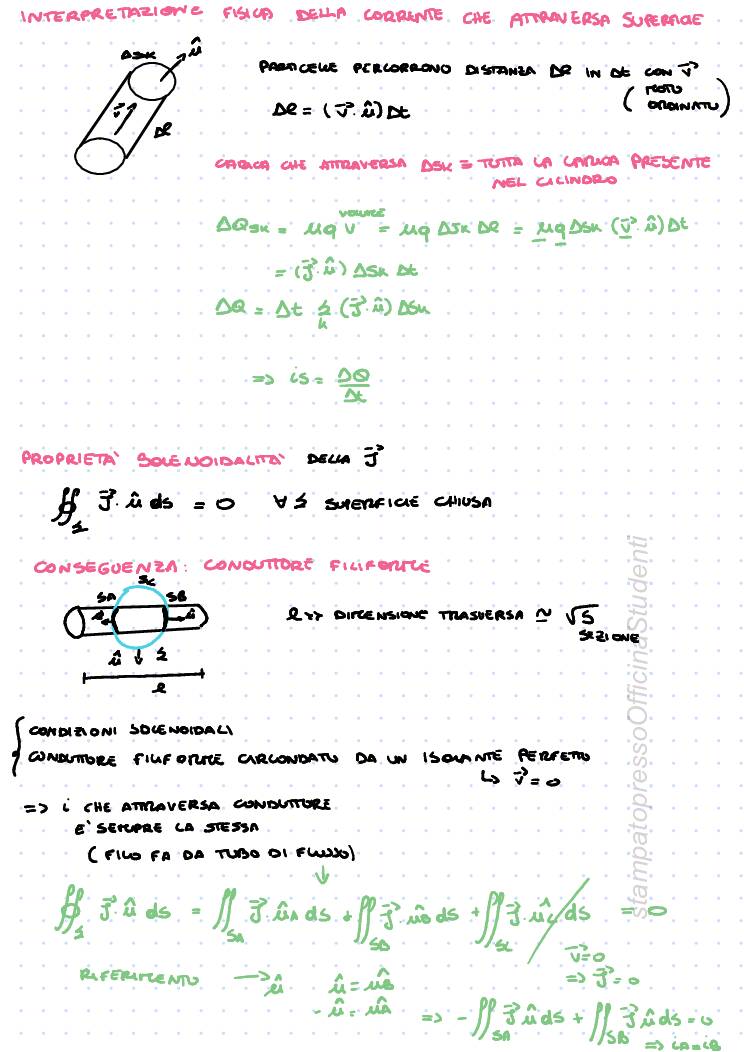 INTERPRETAZIONE FISICA DELLA CORRENTE CHE ATTRAVERSA SUPERFICIE
ΔSK û
v⃗ Δl
PARTICELLE PERCORRONO DISTANZA Δl IN Δt CON v⃗
(MOTO ORDINATO)
Δl = (v⃗ · û) Δt
CARICA CHE ATTRAVERSA ΔSK = TUTTA LA CARICA PRESENTE
NEL CILINDRO
VOLUME
ΔQSK = nq V = nq ΔSK Δl = nq ΔSK (v⃗ · û) Δt
= (J⃗ · û) ΔSK Δt
ΔQ = Δt Σk (J⃗ · û) ΔSK
=> iS = ΔQ/Δt
PROPRIETA' SOLENOIDALITA' DELLA J⃗
∯Σ J⃗ · û dS = 0 ∀ Σ SUPERFICIE CHIUSA
CONSEGUENZA: CONDUTTORE FILIFORME
SL
SA SB
û û
û Σ
l
l >> DIMENSIONE TRASVERSA ≃ √S
SEZIONE
CONDIZIONI SOLENOIDALI
CONDUTTORE FILIFORME CIRCONDATO DA UN ISOLANTE PERFETTO
↳ v⃗ = 0
=> i CHE ATTRAVERSA CONDUTTORE
E' SEMPRE LA STESSA
(FILO FA DA TUBO DI FLUSSO)
∯Σ J⃗ · û dS = ∬SA J⃗ · ûA dS + ∬SB J⃗ · ûB dS + ∬SL J⃗ · ûL dS = 0
v⃗ = 0
=> J⃗ = 0
RIFERIMENTO → û û = ûB
- û = ûA
=> - ∬SA J⃗ · û dS + ∬SB J⃗ · û dS = 0
=> iA = iB
stampatopressoOfficinaStudenti